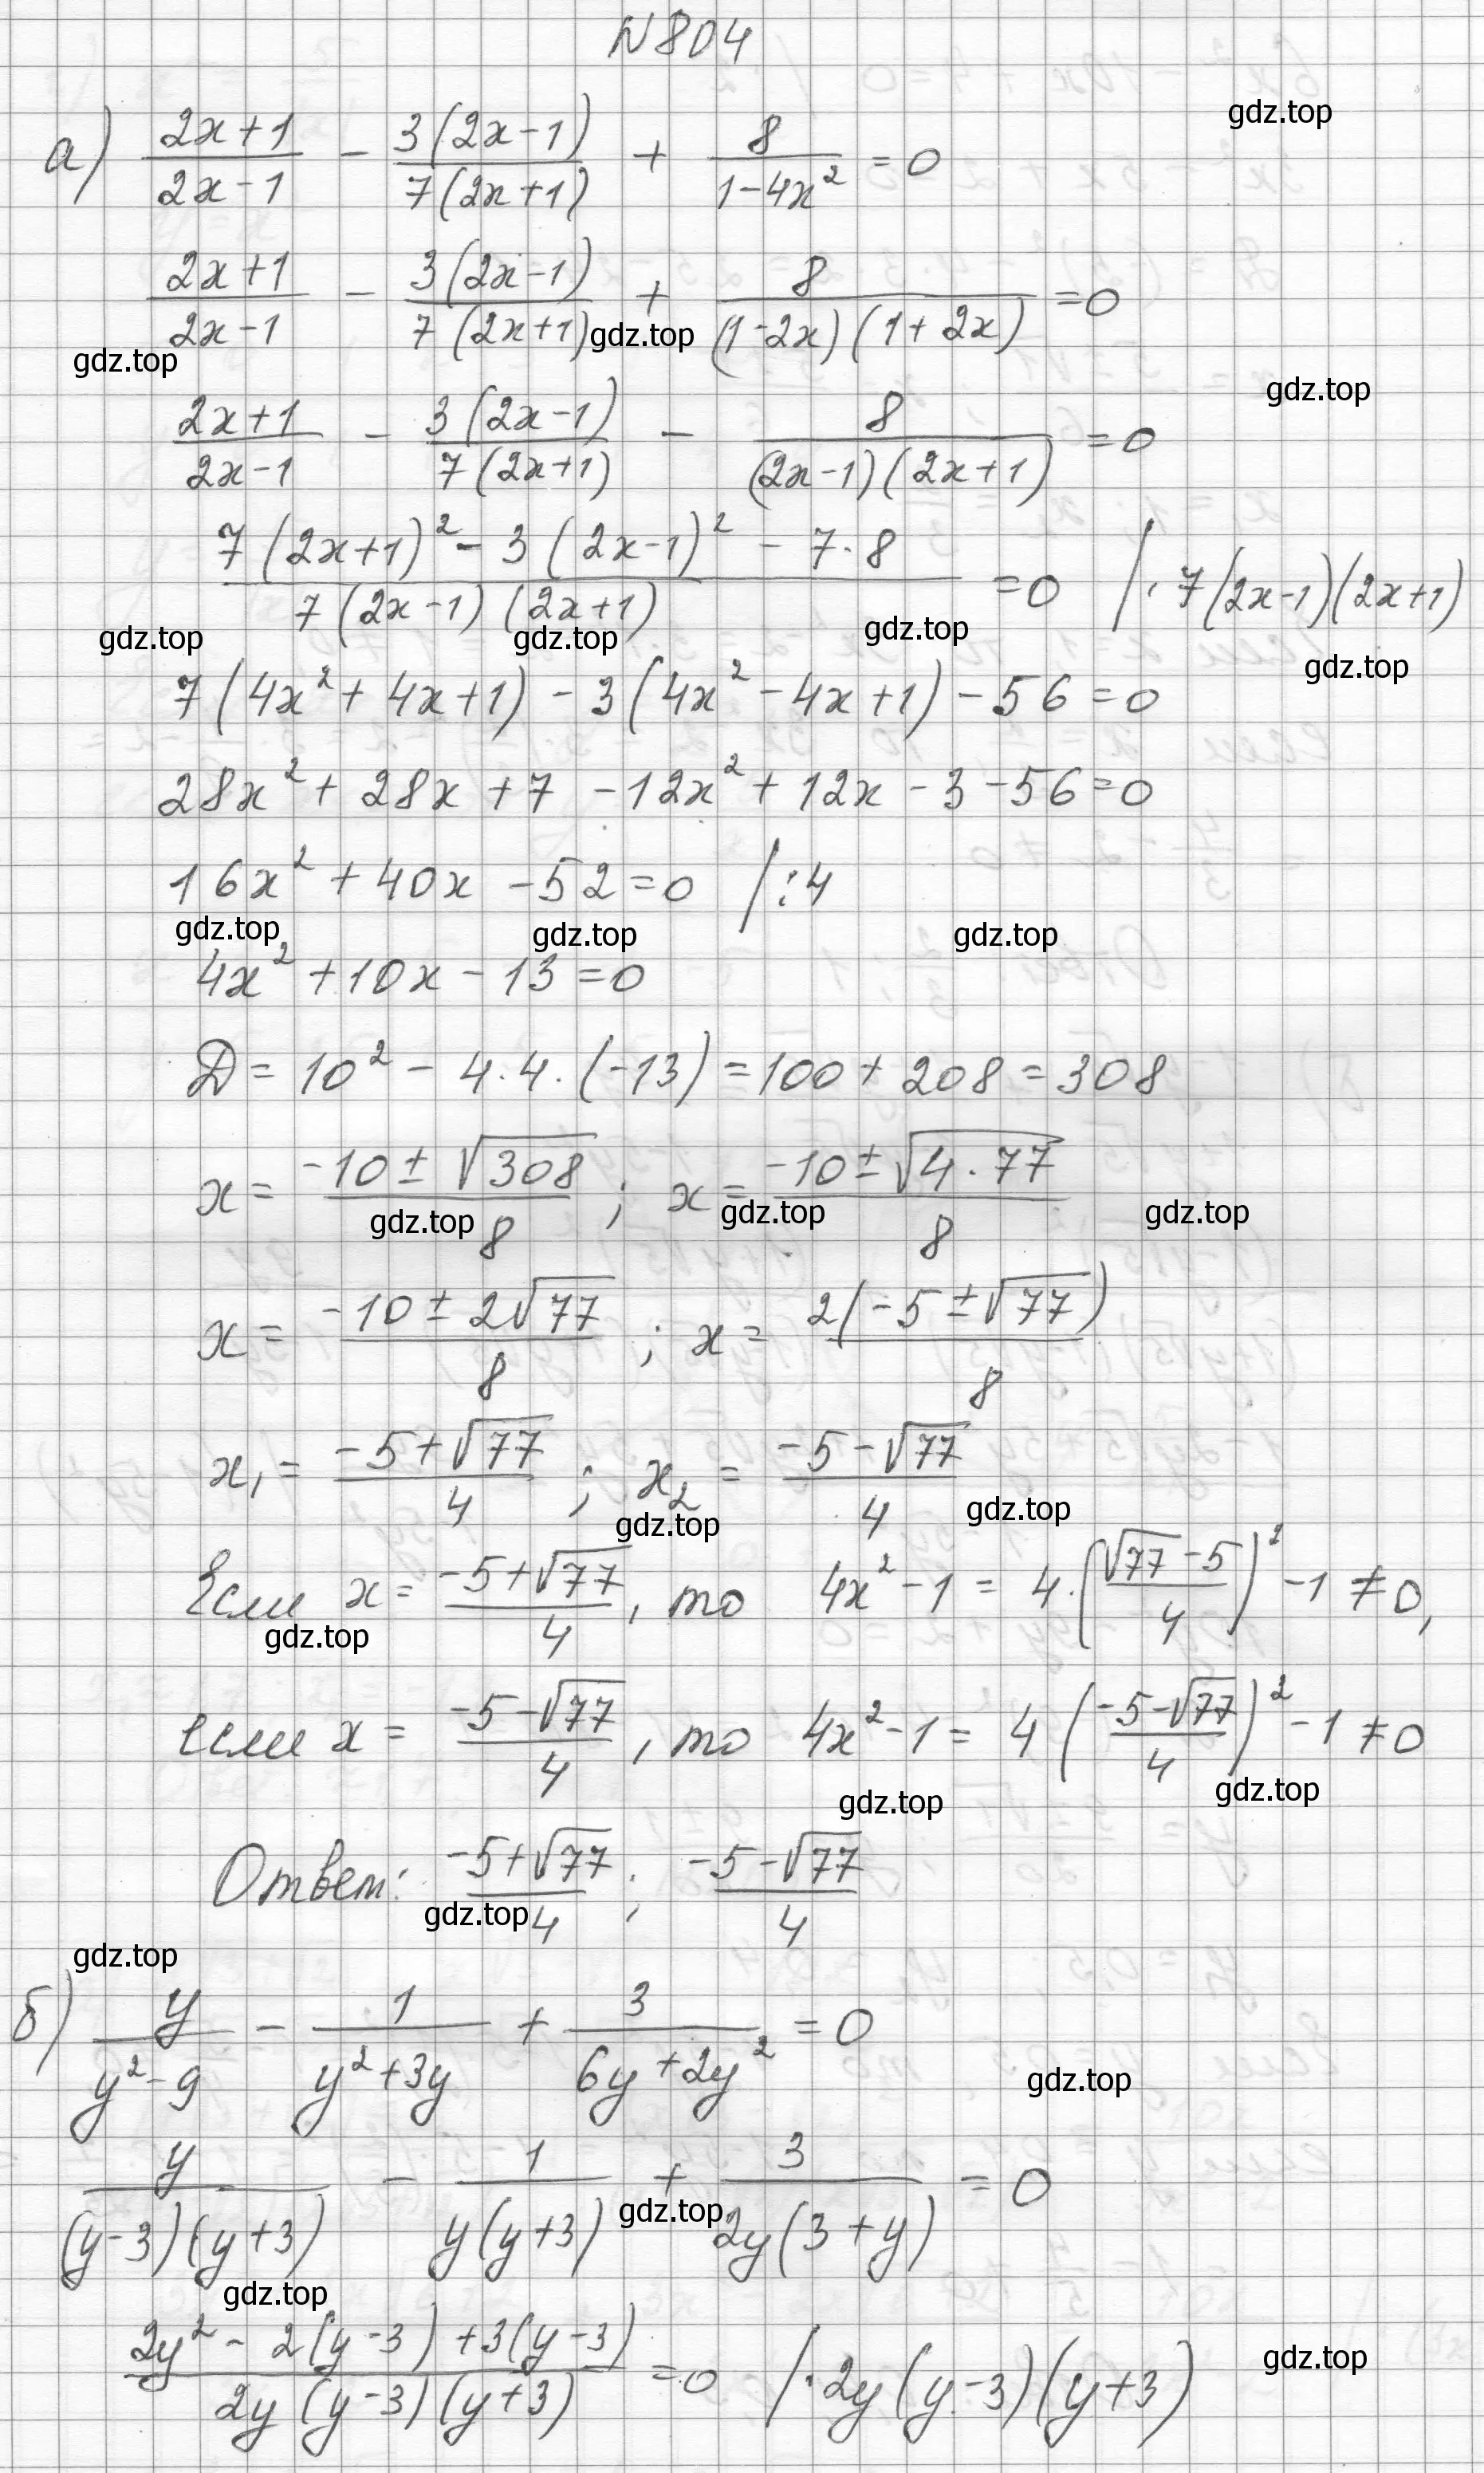 N 804
а) (2x+1)/(2x-1) - 3(2x-1)/(7(2x+1)) + 8/(1-4x²) = 0
gdz.top
(2x+1)/(2x-1) - 3(2x-1)/(7(2x+1)) + 8/((1-2x)(1+2x)) = 0
gdz.top
gdz.top
gdz.top
(2x+1)/(2x-1) - 3(2x-1)/(7(2x+1)) - 8/((2x-1)(2x+1)) = 0
(7(2x+1)² - 3(2x-1)² - 7·8)/(7(2x-1)(2x+1)) = 0 /·7(2x-1)(2x+1)
gdz.top gdz.top gdz.top
gdz.top
7(4x²+4x+1) - 3(4x²-4x+1) - 56 = 0
28x² + 28x + 7 - 12x² + 12x - 3 - 56 = 0
16x² + 40x - 52 = 0 /:4
gdz.top gdz.top gdz.top
4x² + 10x - 13 = 0
D = 10² - 4·4·(-13) = 100 + 208 = 308
x = (-10±√308)/8 ; x = (-10±√(4·77))/8
gdz.top gdz.top gdz.top
x = (-10±2√77)/8 ; x = 2(-5±√77)/8
x₁ = (-5+√77)/4 ; x₂ = (-5-√77)/4
gdz.top gdz.top
Если x = (-5+√77)/4, то 4x²-1 = 4·((√77-5)/4)² - 1 ≠ 0,
gdz.top
если x = (-5-√77)/4, то 4x²-1 = 4((-5-√77)/4)² - 1 ≠ 0
gdz.top gdz.top
Ответ: (-5+√77)/4 ; (-5-√77)/4
gdz.top
gdz.top
б) y/(y²-9) - 1/(y²+3y) + 3/(6y+2y²) = 0
gdz.top
y/((y-3)(y+3)) - 1/(y(y+3)) + 3/(2y(3+y)) = 0
gdz.top
gdz.top
(2y² - 2(y-3) + 3(y-3))/(2y(y-3)(y+3)) = 0 /·2y(y-3)(y+3)
gdz.top